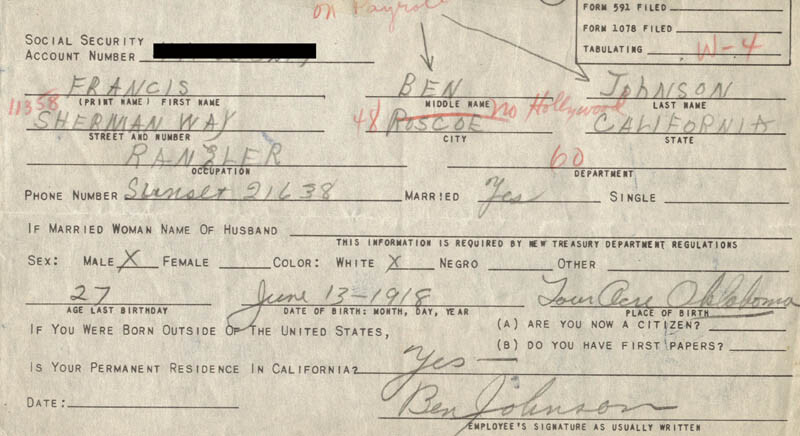 on Payroll
FORM 591 FILED
FORM 1078 FILED
TABULATING W-4
SOCIAL SECURITY
ACCOUNT NUMBER
FRANCIS BEN JOHNSON
(PRINT NAME) FIRST NAME MIDDLE NAME LAST NAME
11358 48 no Hollywood
SHERMAN WAY ROSCOE CALIFORNIA
STREET AND NUMBER CITY STATE
RANGLER 60
OCCUPATION DEPARTMENT
PHONE NUMBER Sunset 21638 MARRIED Yes SINGLE
IF MARRIED WOMAN NAME OF HUSBAND
THIS INFORMATION IS REQUIRED BY NEW TREASURY DEPARTMENT REGULATIONS
SEX: MALE X FEMALE COLOR: WHITE X NEGRO OTHER
27 June 13-1918 Four Acre Oklahoma
AGE LAST BIRTHDAY DATE OF BIRTH: MONTH, DAY, YEAR PLACE OF BIRTH
IF YOU WERE BORN OUTSIDE OF THE UNITED STATES, (A) ARE YOU NOW A CITIZEN?
(B) DO YOU HAVE FIRST PAPERS?
IS YOUR PERMANENT RESIDENCE IN CALIFORNIA? Yes
DATE: Ben Johnson
EMPLOYEE'S SIGNATURE AS USUALLY WRITTEN